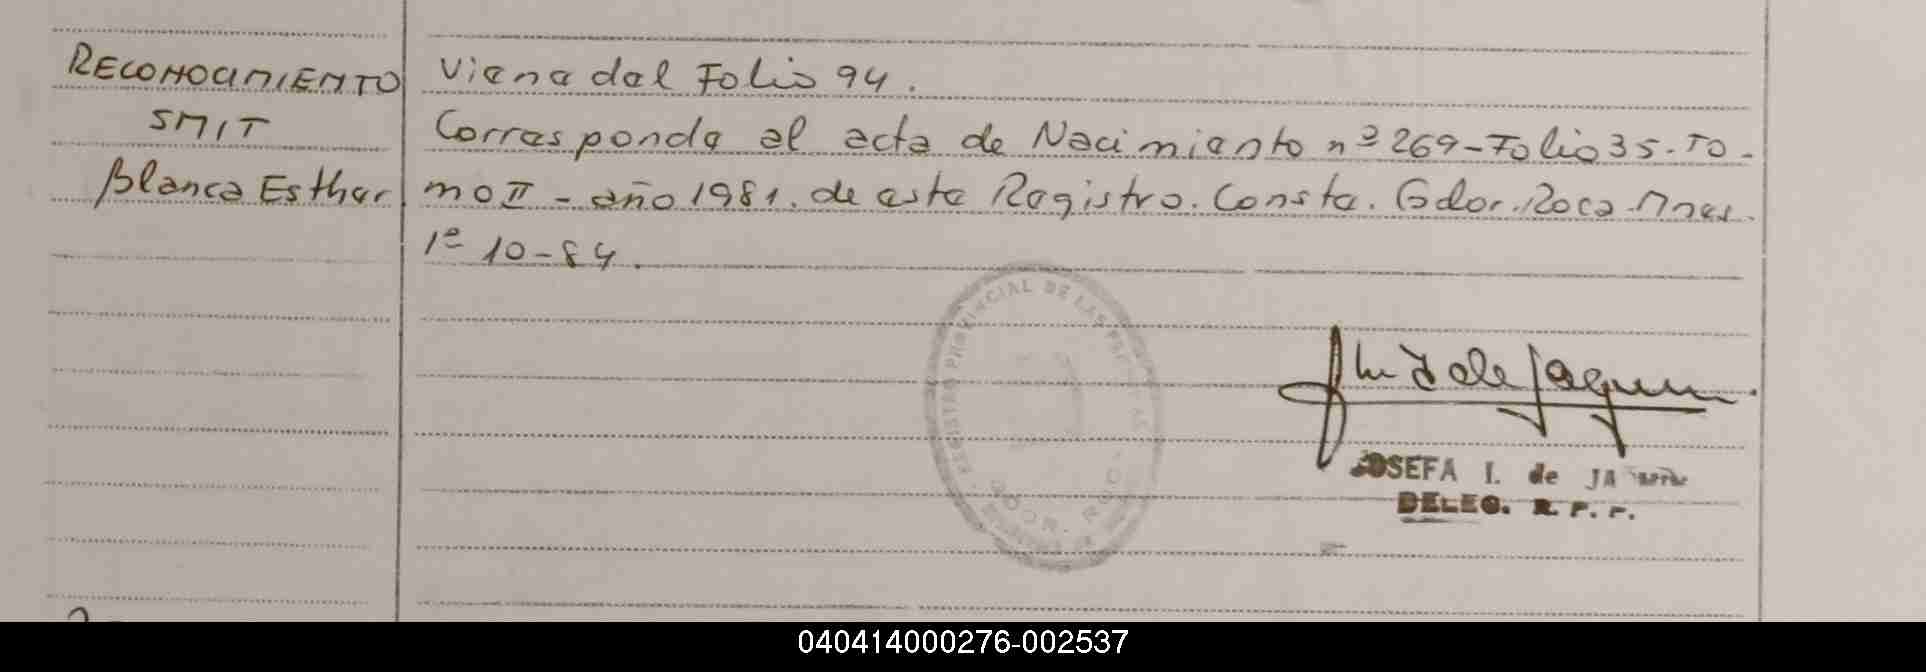 RECONOCIMIENTO
SMIT
Blanca Esther
Viene del Folio 94.
Corresponde al acta de Nacimiento nº 269-Folio 35-To-
mo II - año 1981. de este Registro. Conste. Gdor. Roca. Mnes.
1º 10-84.
REGISTRO PROVINCIAL DE LAS
GDOR. ROCA
JOSEFA I. de
DELEG. R. P. P.
040414000276-002537